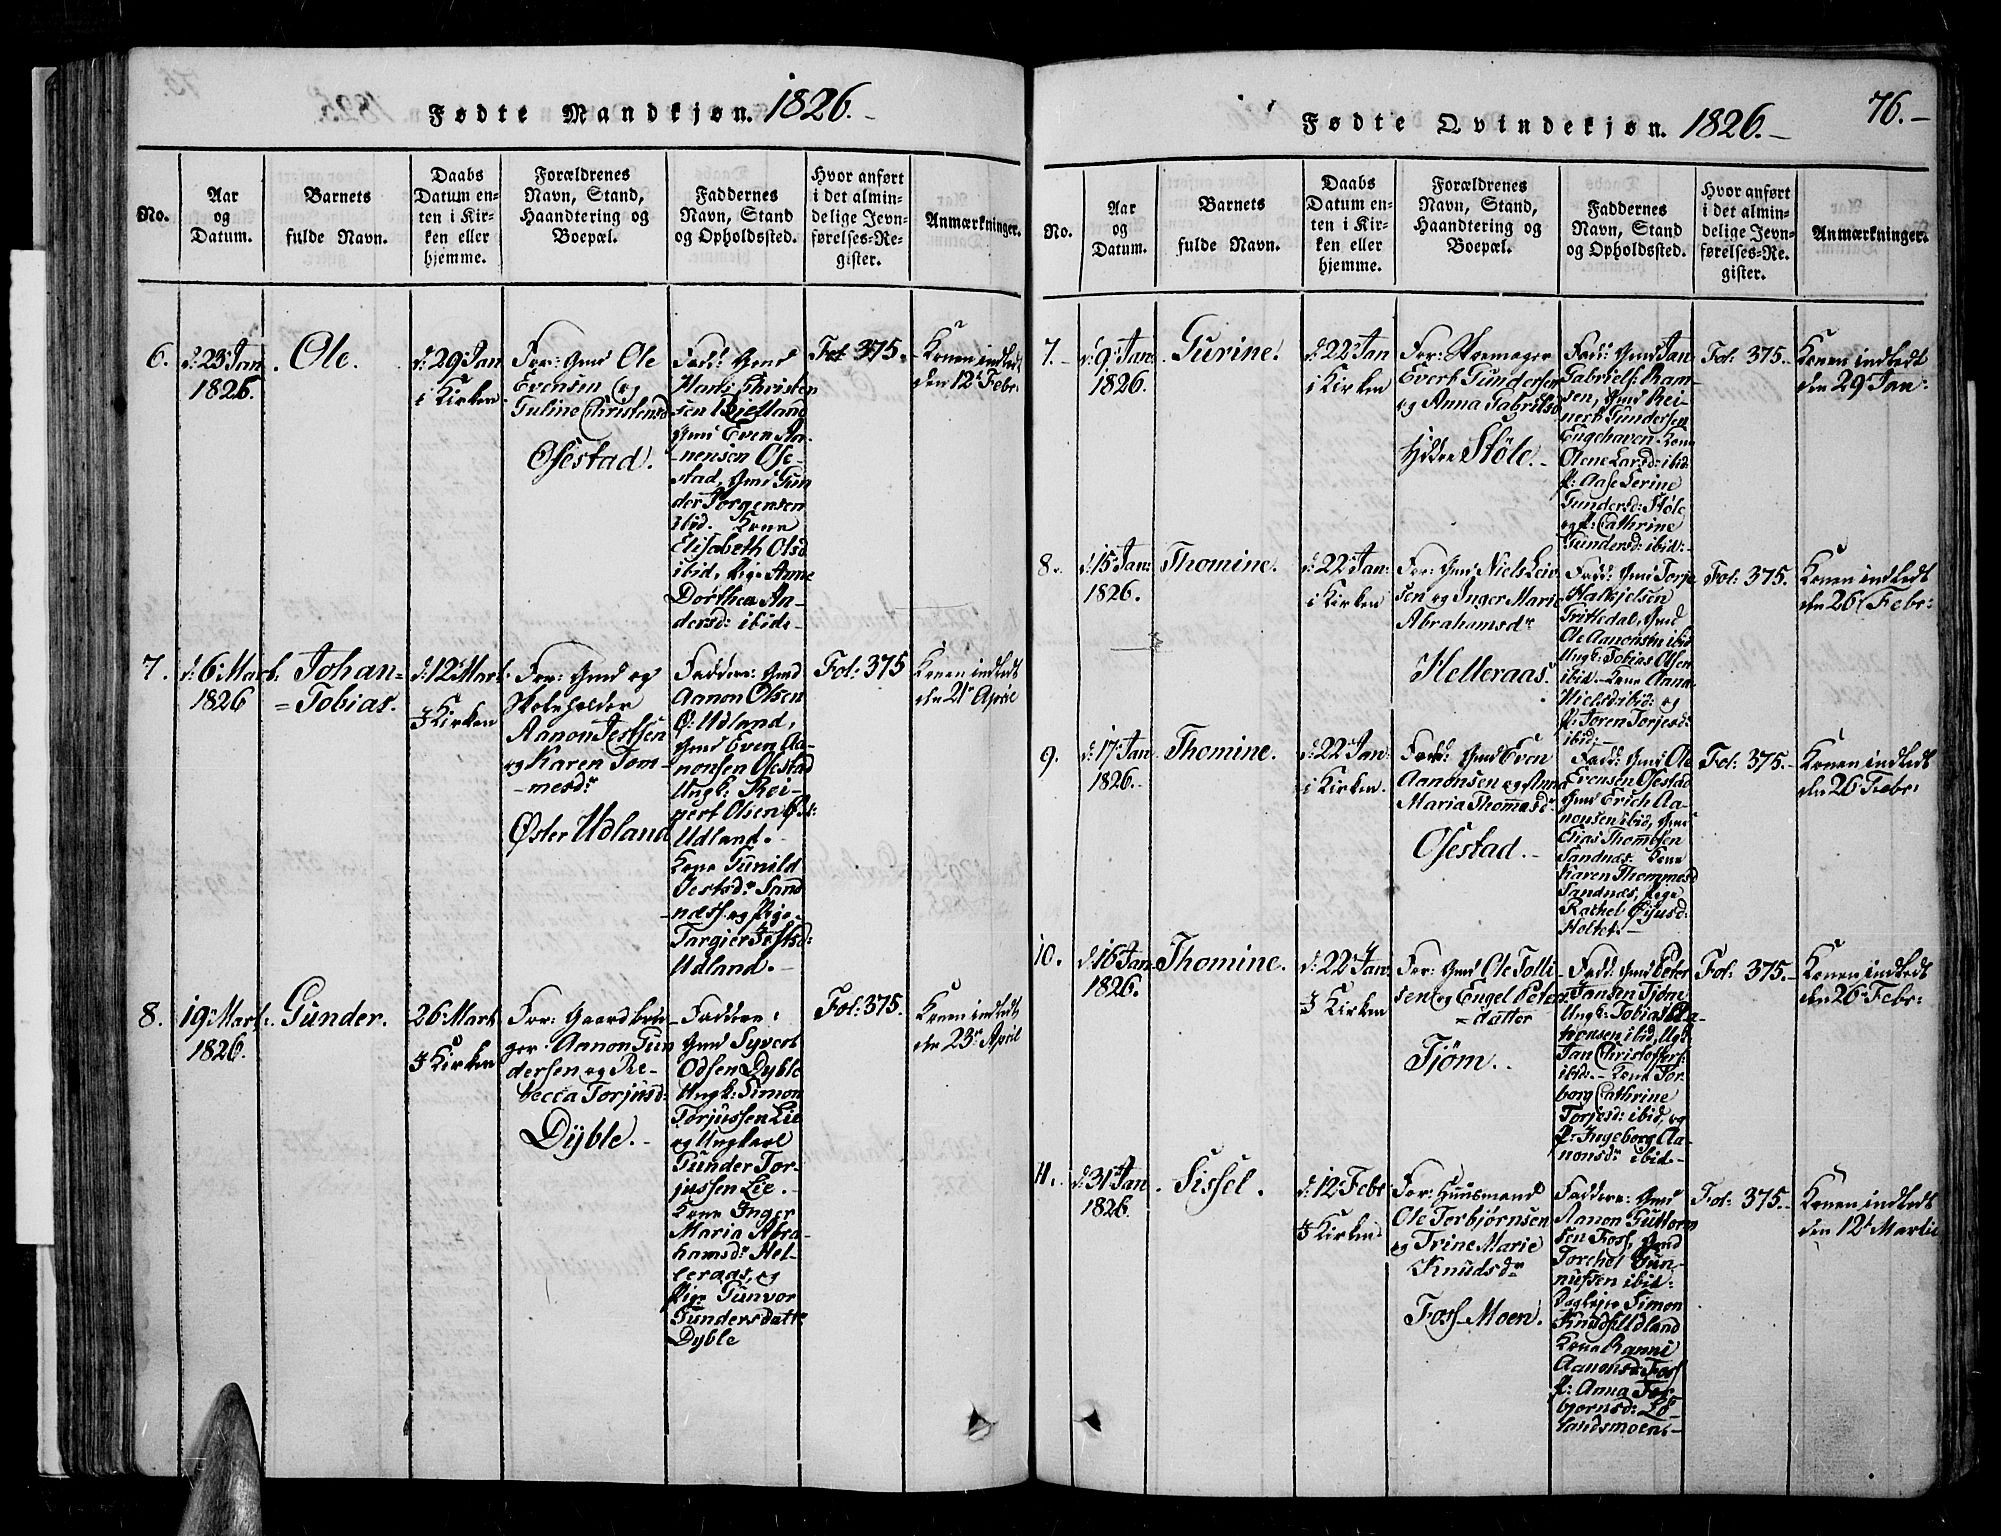 Fødte Mandkjøn. 1826.-
No.
Aar
og
Datum.
Barnets
fulde Navn.
Daabs
Datum en-
ten i Kir-
ken eller
hjemme.
Forældrenes
Navn, Stand,
Haandtering og
Boepæl.
Faddernes
Navn, Stand
og Opholdssted.
Hvor anført
i det almin-
delige Jevn-
førelses-Re-
gister.
Anmærkninger.
6.
d: 23 Jan
1826.
Ole.
d: 29 Jan
i Kirken
For: Gmd Ole
Evensen og
Guline Christensd
Osestad.
Fadd: Gmd
Christen
sen Bjelland
Gmd Even Aa-
nensen Ose-
stad, Gmd Gun
der Jørgensen
ibid. Kone
Elisabeth Olsd
ibid, Pige Anne
Dorthea An-
dersd: ibid.-
Fol: 375.
Konen indledt
den 12t Febr:
7.
d: 6 Mart:
1826
Johan=
=Tobias.
d: 12 Mart.
I Kirken
For: Gmd og
Skoleholder
Aanon Jestsen
og Karen Tom-
-mesdr
Øster Udland
Faddere: Gmd
Aanon Olsen
Ø: Udland,
Gmd Even Aa-
nonsen Osestad
Ungk: Rei-
nert Olsen Øst:
Udland.-
Kone Gunild
Jestsdr Sand
-næss. og Pige
Targier Jestsd:
Udland.-
Fol: 375
Konen indledt
den 21 April
8.
19 Mart.
1826.
Gunder.
26 Mart
I Kirken
For: Gaardbru
ger: Aanon Gun
dersen og Re-
becca Torjusd:
Dyble.-
Faddere:
Gmd Syvert
Odsen Dyble
Ungk: Simon
Torjussen Lie
og Ungkarl
Gunder Tor-
jussen Lie.-
Kone Inger
Maria Abra-
hamsdr Hel-
leraas, og
Pige Gunvor
Gundersdatte
Dyble
Fol: 375.
Konen indledt
den 23 April
76.-
Fødte Qvindekjøn. 1826.-
No.
Aar
og
Datum.
Barnets
fulde Navn.
Daabs
Datum en-
ten i Kir-
ken eller
hjemme.
Forældrenes
Navn, Stand,
Haandtering og
Boepæl.
Faddernes
Navn, Stand
og Opholdssted.
Hvor anført
i det almin-
delige Jevn-
førelses-Re-
gister.
Anmærkninger.
7.-
d: 9 Jan:
1826.
Gurine.
d: 22 Jan
i Kirken
For: Skomager
Evert Gundersen
og Anna Gabrilsd
Støle.-
Fadd: Gmd Jan
Gabriels: Ram-
sen, Gmd Rei-
nert Gundersen
Engehaven Kone
Olene Larsd: ibid.
P: Aase Serine
Gundersd: Støle
og P: Cathrine
Gundersd: ibid:-
Fol: 375.-
Konen indledt
den 29 Jan:
8.
d: 15 Jan:
1826.
Thomine.
d: 22 Jan:
i Kirken
For: Gmd Niels Leiv
sen og Inger Marie
Abrahamsdr
Helleraas.
Fadd: Gmd Torje
Halkjelsen
Trittedal, Gmd
Ole Aanonsen ibid
Ungk: Tobias Olsen
ibid.- Kone Anna
Nielsd: ibid: og
P: Joren Torjesd:
ibid:-
Fol: 375.
Konen indledt
den 26 Febr:
9.
d: 17 Jan
1826.
Thomine.
d: 22 Jan:
i Kirken.
Fadd: Gmd Even
Aanonsen og Anne
Maria Thomasdr
Osestad.-
Fadd: Gmd Ole
Evensen Osestad
Gmd Erich Aa-
nonsen ibid, Gmd
Elias Thommsen
Sandnæs. Kone
Karen Thommesd
Sandnæs, Pige
Rachel Øijusd:
Holtet.-
Fol: 375.-
Konen indledt
den 26 Febr:
10.
d: 16 Jan
1826.
Thomine.
d: 22 Jan
I Kirken
For: Gmd Ole Tolli
sen og Engel Peters
=datter
Tjøm.
Fadd: Gmd Peter
Jansen Tjøm
Ungk: Tobias Aa-
nonsen ibid, Ugk:
Jan Christoffers:
ibid:- Kone Tor-
borg Cathrine
Torjesd: ibid, og
P: Ingeborg Aa-
nonsdr ibid.-
Fol: 375.-
Konen indledt
den 26 Febr:
11.
d: 31 Jan
1826.
Sissel.
d: 12 Febr
I Kirken
For: Huusmand
Ole Terbjørnsen
og Trine Marie
Knudsdr
Foss-Moen.
Faddere: Gmd
Aanon Guttorm
sen Foss, Gmd
Torchel Gun-
nufsen ibid:
Simon
Knuds: Udland
Kone Ranni
Aanonsd: Foss
P: Anna Ter-
bjørnsd: Lø-
landsmoen:-
Fol: 375.-
Konen indledt
den 12 Martii